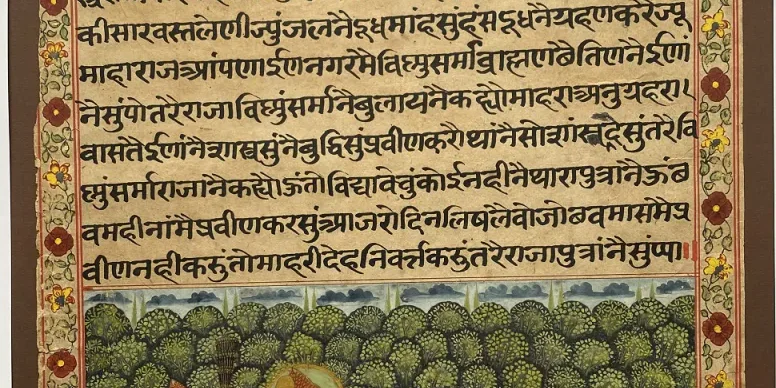 कीसारवस्तलेणीज्युंजलनैऽधमांहसुंहंसऽधनैयहणकरैज्यू
माहाराजआंपणाईणनगरमैविष्णुसर्माब्राह्मणबैतिणनैईणां
नैसुंपोतरैराजाविष्णुंसर्मानैबुलायनैकह्योमाहराअनुयहरा।
वासतैईणांनैशास्त्रसुंनैबुद्धिसुंप्रवीणकरौथांनैसोशांसुंतरैवि
ष्णुंसर्माराजानैकह्यो।ऊंतोविद्यावेचुंकोईनहीनैथारापुत्रांनैऊंब
वमहीनांमैप्रवीणकरसुंआजरोदिनलिषंलैवोजोबवमासमैप्र
वीणनहीकरुंतोमाहरीदेहनिवर्त्तकरुंतरैराजापुत्रांनैसुंप्पा॥